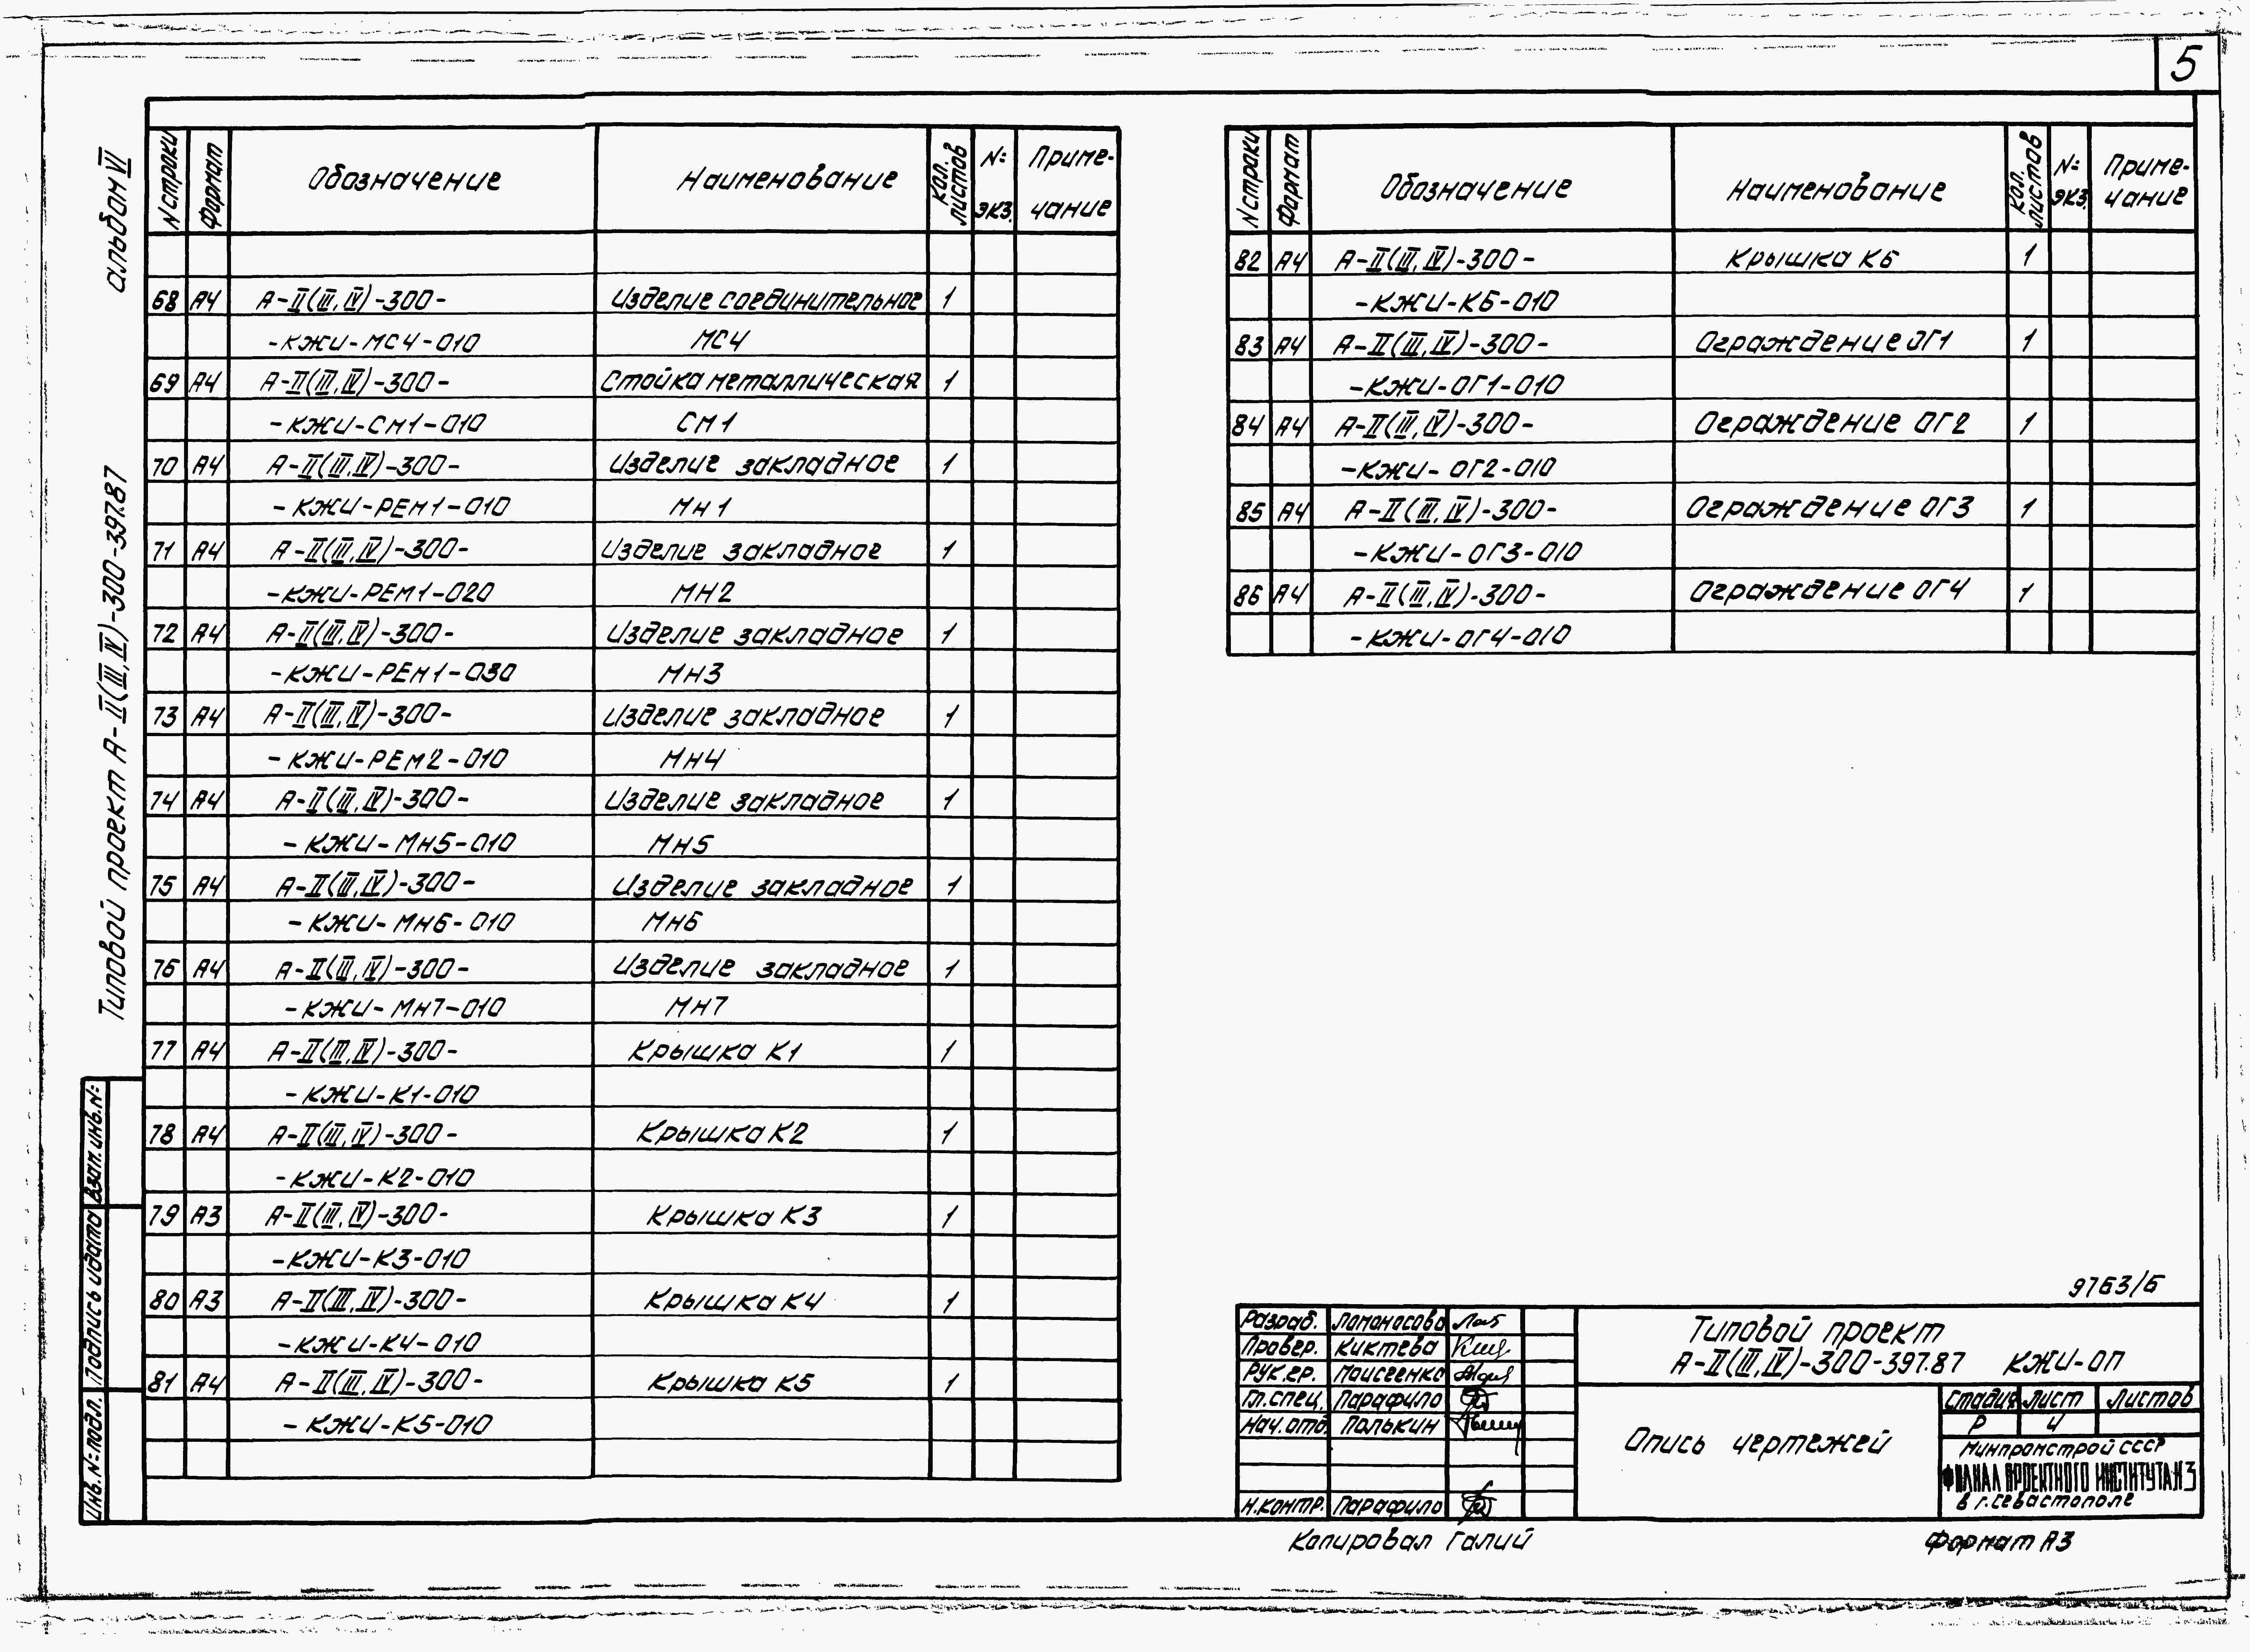 5
альбом VI
Типовой проект А-II(III,IV)-300-397.87
N строки Формат Обозначение Наименование Кол. листов №: экз. Приме-чание
68 А4 А-II(III,IV)-300- Изделие соединительное 1
-КЖИ-МС4-010 МС4
69 А4 А-II(III,IV)-300- Стойка металлическая 1
-КЖИ-СМ1-010 СМ1
70 А4 А-II(III,IV)-300- Изделие закладное 1
-КЖИ-РЕМ1-010 МН1
71 А4 А-II(III,IV)-300- Изделие закладное 1
-КЖИ-РЕМ1-020 МН2
72 А4 А-II(III,IV)-300- Изделие закладное 1
-КЖИ-РЕМ1-030 МН3
73 А4 А-II(III,IV)-300- Изделие закладное 1
-КЖИ-РЕМ2-010 МН4
74 А4 А-II(III,IV)-300- Изделие закладное 1
-КЖИ-МН5-010 МН5
75 А4 А-II(III,IV)-300- Изделие закладное 1
-КЖИ-МН6-010 МН6
76 А4 А-II(III,IV)-300- Изделие закладное 1
-КЖИ-МН7-010 МН7
77 А4 А-II(III,IV)-300- Крышка К1 1
-КЖИ-К1-010
78 А4 А-II(III,IV)-300- Крышка К2 1
-КЖИ-К2-010
79 А3 А-II(III,IV)-300- Крышка К3 1
-КЖИ-К3-010
80 А3 А-II(III,IV)-300- Крышка К4 1
-КЖИ-К4-010
81 А4 А-II(III,IV)-300- Крышка К5 1
-КЖИ-К5-010
N строки Формат Обозначение Наименование Кол. листов №: экз. Приме-чание
82 А4 А-II(III,IV)-300- Крышка К6 1
-КЖИ-К6-010
83 А4 А-II(III,IV)-300- Ограждение ОГ1 1
-КЖИ-ОГ1-010
84 А4 А-II(III,IV)-300- Ограждение ОГ2 1
-КЖИ-ОГ2-010
85 А4 А-II(III,IV)-300- Ограждение ОГ3 1
-КЖИ-ОГ3-010
86 А4 А-II(III,IV)-300- Ограждение ОГ4 1
-КЖИ-ОГ4-010
Взам. инв. №:
Подпись и дата
Инв. №: подл.
9763/6
Разраб. Ломоносова
Провер. Киктева
Рук.гр. Моисеенко
Гл.спец. Парафило
Нач.отд. Полькин
Н.контр. Парафило
Типовой проект
А-II(III,IV)-300-397.87 КЖИ-ОП
Опись чертежей
Стадия Лист Листов
Р 4
Минпромстрой СССР
ФИЛИАЛ ПРОЕКТНОГО ИНСТИТУТА №3
в г. Севастополе
Копировал Галий
Формат А3